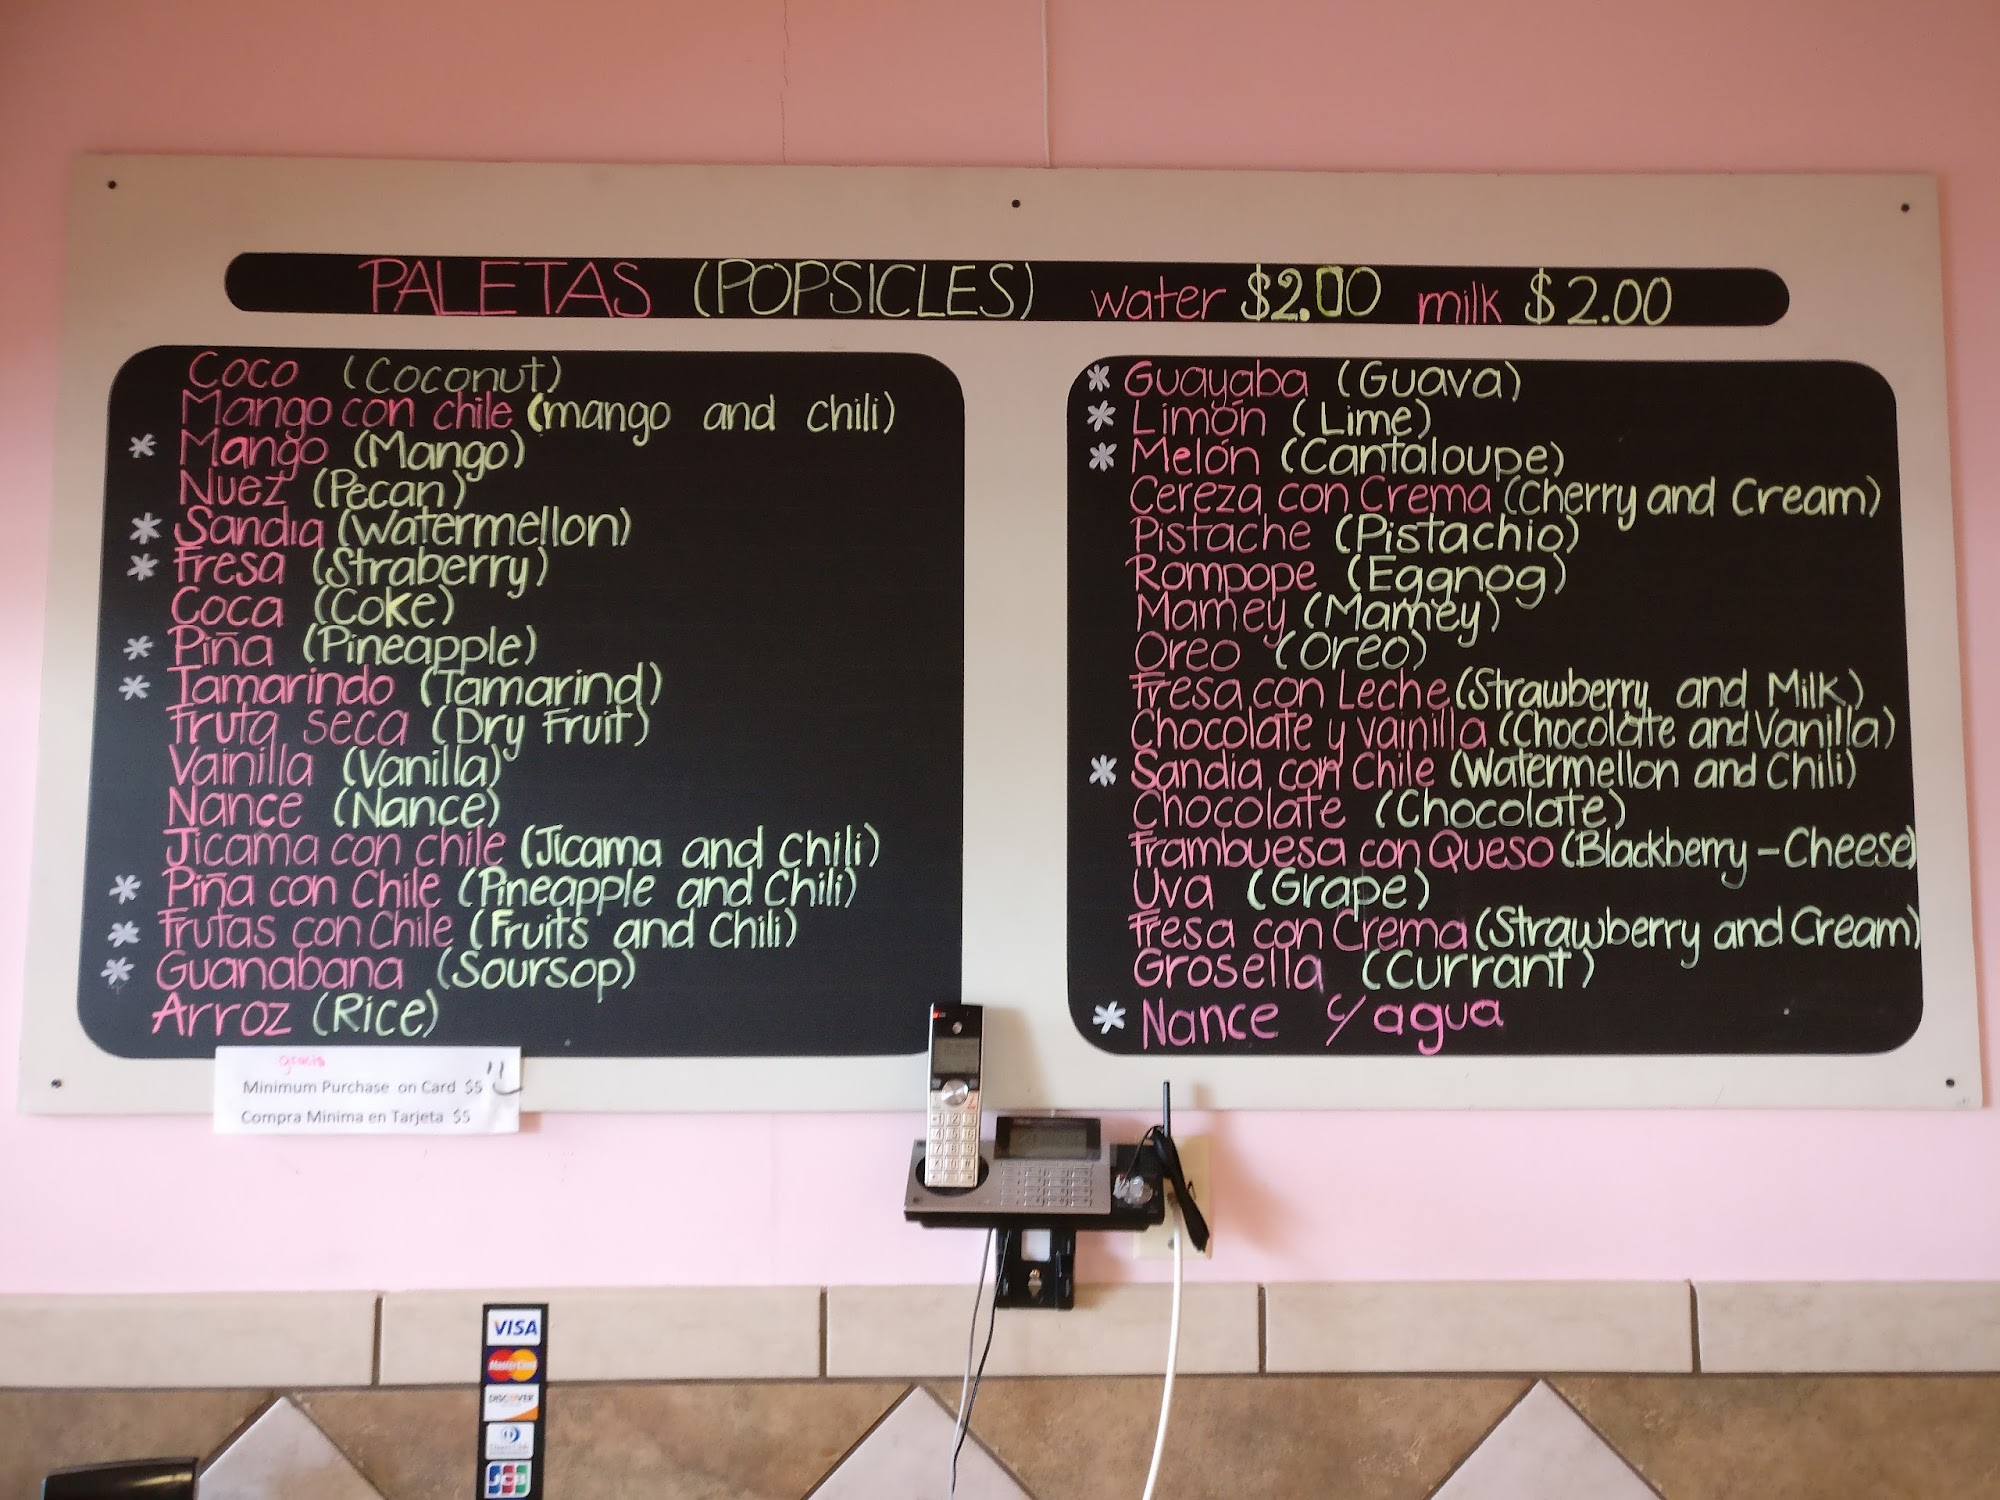 PALETAS (POPSICLES) water $2.00 milk $2.00
Coco (Coconut)
Mango con chile (mango and chili)
* Mango (Mango)
Nuez (Pecan)
* Sandia (Watermellon)
* Fresa (Straberry)
Coca (Coke)
* Piña (Pineapple)
* Tamarindo (Tamarind)
Fruta seca (Dry Fruit)
Vainilla (Vanilla)
Nance (Nance)
Jicama con chile (Jicama and Chili)
* Piña con Chile (Pineapple and Chili)
* Frutas con Chile (Fruits and Chili)
* Guanabana (Soursop)
Arroz (Rice)
* Guayaba (Guava)
* Limón (Lime)
* Melón (Cantaloupe)
Cereza con Crema (Cherry and Cream)
Pistache (Pistachio)
Rompope (Eggnog)
Mamey (Mamey)
Oreo (Oreo)
Fresa con Leche (Strawberry and Milk)
Chocolate y vainilla (Chocolate and Vanilla)
* Sandia con Chile (Watermellon and Chili)
Chocolate (Chocolate)
Frambuesa con Queso (Blackberry - Cheese)
Uva (Grape)
Fresa con Crema (Strawberry and Cream)
Grosella (Currant)
* Nance c/ agua
Minimum Purchase on Card $5
Compra Minima en Tarjeta $5
VISA
MasterCard
DISCOVER
JCB